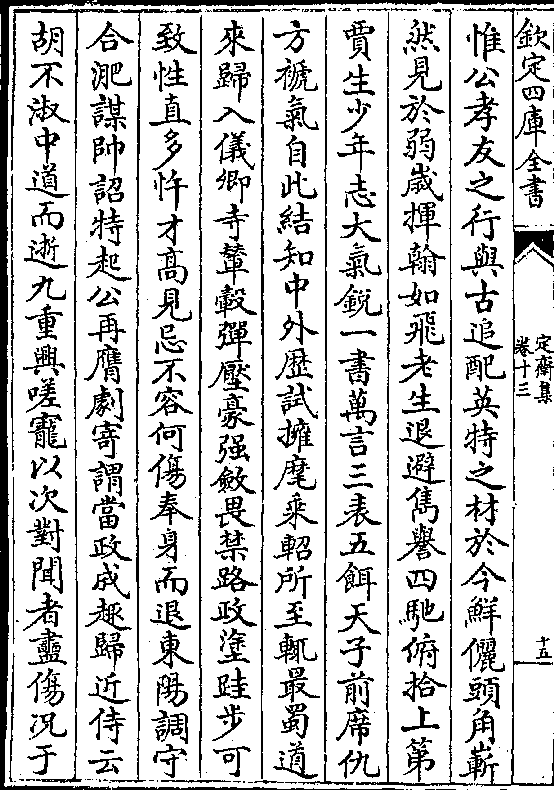 欽定四庫全書
定齋集
卷十三
十五
惟公孝友之行與古追配英特之材於今鮮儷頭角嶄
然見於弱嵗揮翰如飛老生退避雋譽四馳俯拾上第
賈生少年志大氣銳一書萬言三表五餌天子前席仇
方褫氣自此結知中外歴試擁麾乘軺所至輒最蜀道
來歸入儀卿寺輦轂彈壓豪强斂畏禁路政塗跬步可
致性直多忤才髙見忌不容何傷奉身而退東陽調守
合淝謀帥詔特起公再膺劇寄謂當政成趣歸近侍云
胡不淑中道而逝九重興嗟寵以次對聞者衋傷况于